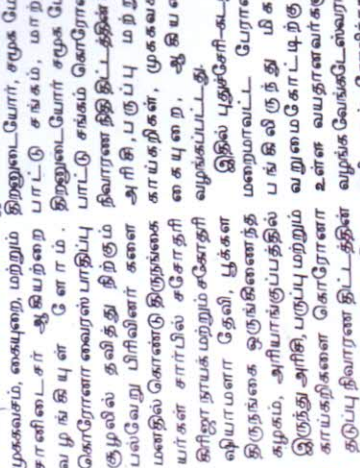 முககவசம், கையுறை, மற்றும்
சானிடைசர் ஆகியற்றை
வழங்கியுள்ளோம்.
கொரோனா வைரஸ் பாதிப்பு
சூழலில் தவித்து நிற்கும்
பல்வேறு பிரிவினர் களை
மனதில் கொண்டு திருநங்கை
யர்கள் சார்பில் சகோதரி
கிரிஜா நாயக் மற்றும் சகோதரி
ஷியாமளா தேவி, பூக்கள
திருநங்கை ஒருங்கிணைந்த
கழகம், அரியாங்குப்பத்தில்
இருந்து அரிசி, பருப்பு மற்றும்
காய்கறிகளை கொரோனா
தடுப்பு நிவாரண திட்டத்தின்
திறனுடையோர், சமூக மே
பாட்டு சங்கம், மாற்
திறனுடையோர் சமூக மே
பாட்டு சங்கம் கொரோன
நிவாரண நிதி திட்டத்தின்
அரிசி,பருப்பு மற்ற
காய்கறிகள், முககவச
கையுறை, ஆகிய
வழங்கப்பட்டது.
இதில் புதுச்சேரி-கட
மறைமாவட்ட பேரா
பங்கிலிருந்து மிக
வறுமைகோட்டிற்கு
உள்ள வயதானவர்க
வழங்க வேங்கடேஸ்வரா